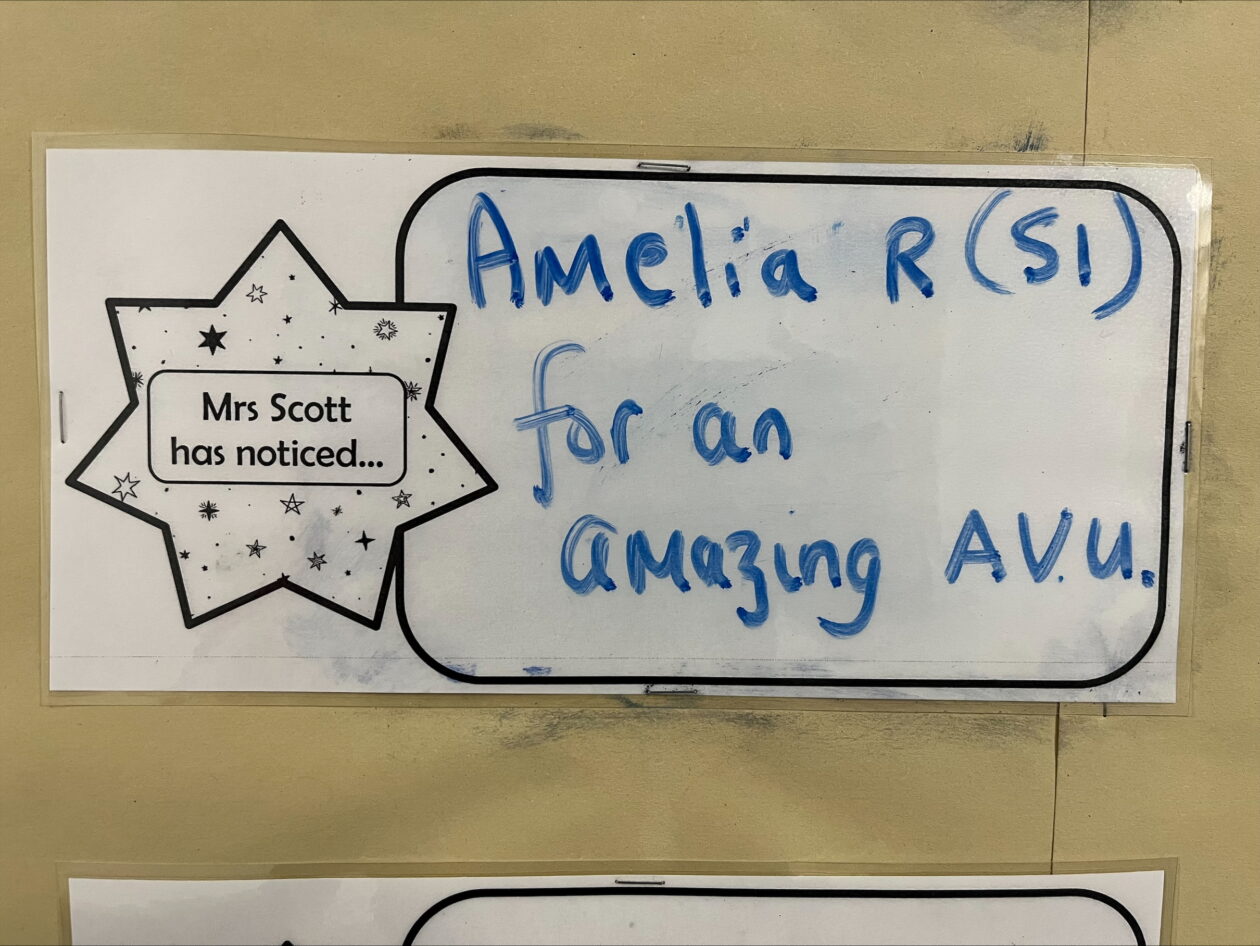 Mrs Scott
has noticed...
Amelia R (S1)
for an
amazing A.V.U.